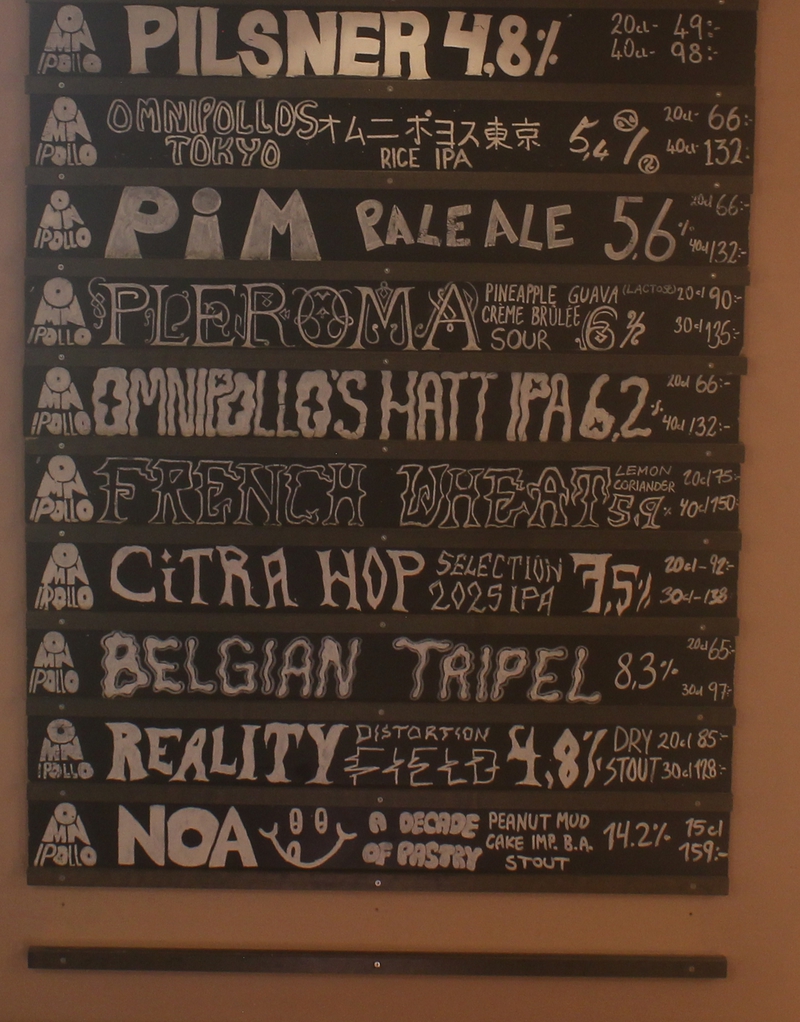 OMNIPOLLO PILSNER 4,8% 20cl- 49:-
40cl- 98:-
OMNIPOLLO OMNIPOLLOS オムニポヨス東京 5,4% 20cl- 66:-
TOKYO RICE IPA 40cl- 132:-
OMNIPOLLO PiM PALE ALE 5,6% 20cl 66:-
40cl 132:-
OMNIPOLLO PLEROMA PINEAPPLE GUAVA (LACTOSE) 20cl 90:-
CRÈME BRÛLÉE 6%
SOUR 30cl 135:-
OMNIPOLLO OMNIPOLLO'S HATT IPA 6,2% 20cl 66:-
40cl 132:-
OMNIPOLLO FRENCH WHEAT LEMON 20cl 75:-
CORIANDER
5,9% 40cl 150:-
OMNIPOLLO CiTRA HOP SELECTION 7,5% 20cl- 92:-
2025 IPA 30cl- 138
OMNIPOLLO BELGIAN TRIPEL 8,3% 20cl 65:-
30cl 97:-
OMNIPOLLO REALITY DISTORTION 4,8% DRY 20cl 85:-
FIELD STOUT 30cl 128:-
OMNIPOLLO NOA A DECADE PEANUT MUD 14.2% 15cl
OF PASTRY CAKE IMP. B.A. 159:-
STOUT